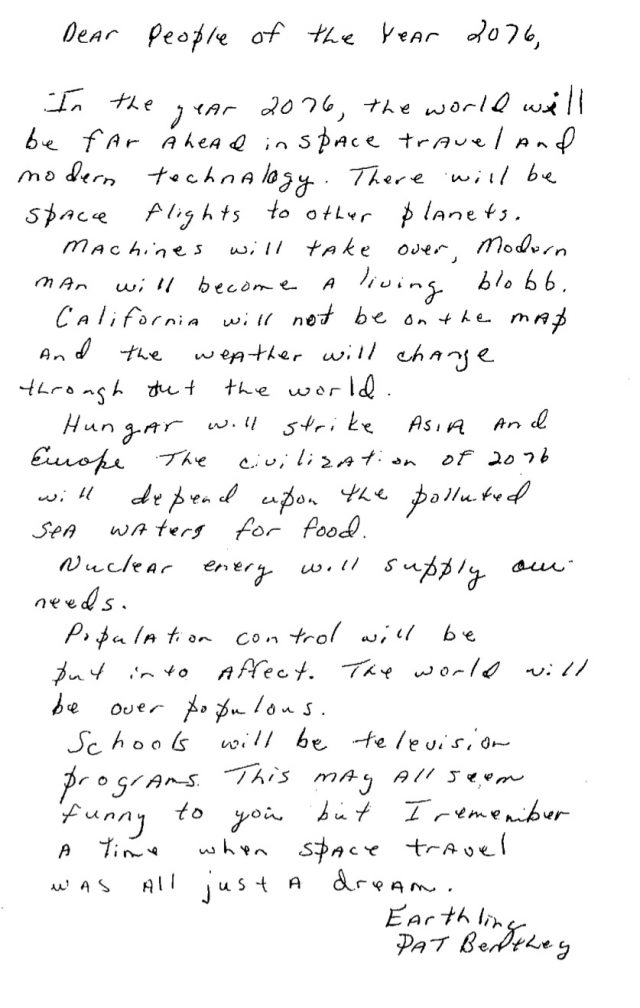 Dear People of the Year 2076,
In the year 2076, the world will
be far ahead in space travel and
modern technalogy. There will be
space flights to other planets.
Machines will take over, Modern
man will become a living blobb.
California will not be on the map
and the weather will change
through out the world.
Hungar will strike Asia and
Europe The civilization of 2076
will depend upon the polluted
sea waters for food.
Nuclear enery will supply our
needs.
Population control will be
put into affect. The world will
be over populous.
Schools will be television
programs. This may all seem
funny to you but I remember
a time when space travel
was all just a dream.
Earthling
Pat